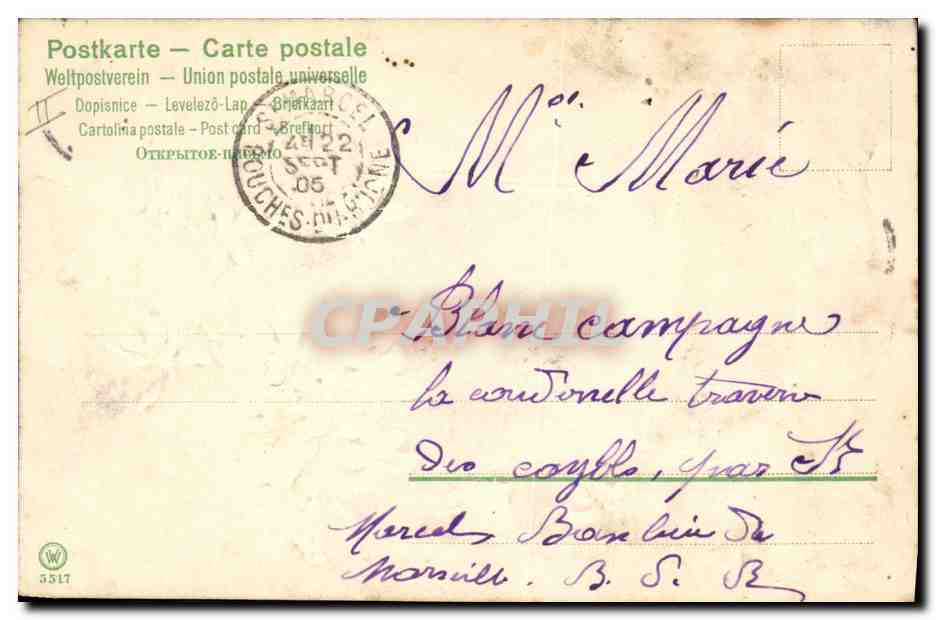 Postkarte — Carte postale
Weltpostverein — Union postale universelle
Dopisnice — Levelező-Lap — Briefkaart
Cartolina postale — Post card — Brefkort
Открытое-письмо
II
ST MARCEL
4E 22
SEPT
05
BOUCHES-DU-RHONE
Mlle Marie
Blanc campagne
la
des par St
Marcel Banlieu de
Marseille. B. D. R
CPARAMA
W
5517